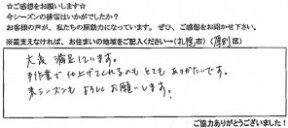 ☆ご感想をお願いします☆
今シーズンの排雪はいかがでしたか？
お客様の声が、私たちの原動力になっています。ぜひ、ご感想をお聞かせ下さい。
※差支えなければ、お住まいの地域をご記入ください→(札幌市)(厚別区)
大変満足しています。
手作業で仕上げてくれるのもとてもありがたいです。
来シーズンもよろしくお願いします!
ご協力ありがとうございました！